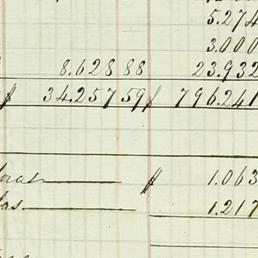 5.274
3.000
8.628 88 23.932
$ 34.257 59 $ 796.241
$ 1.063
1.217